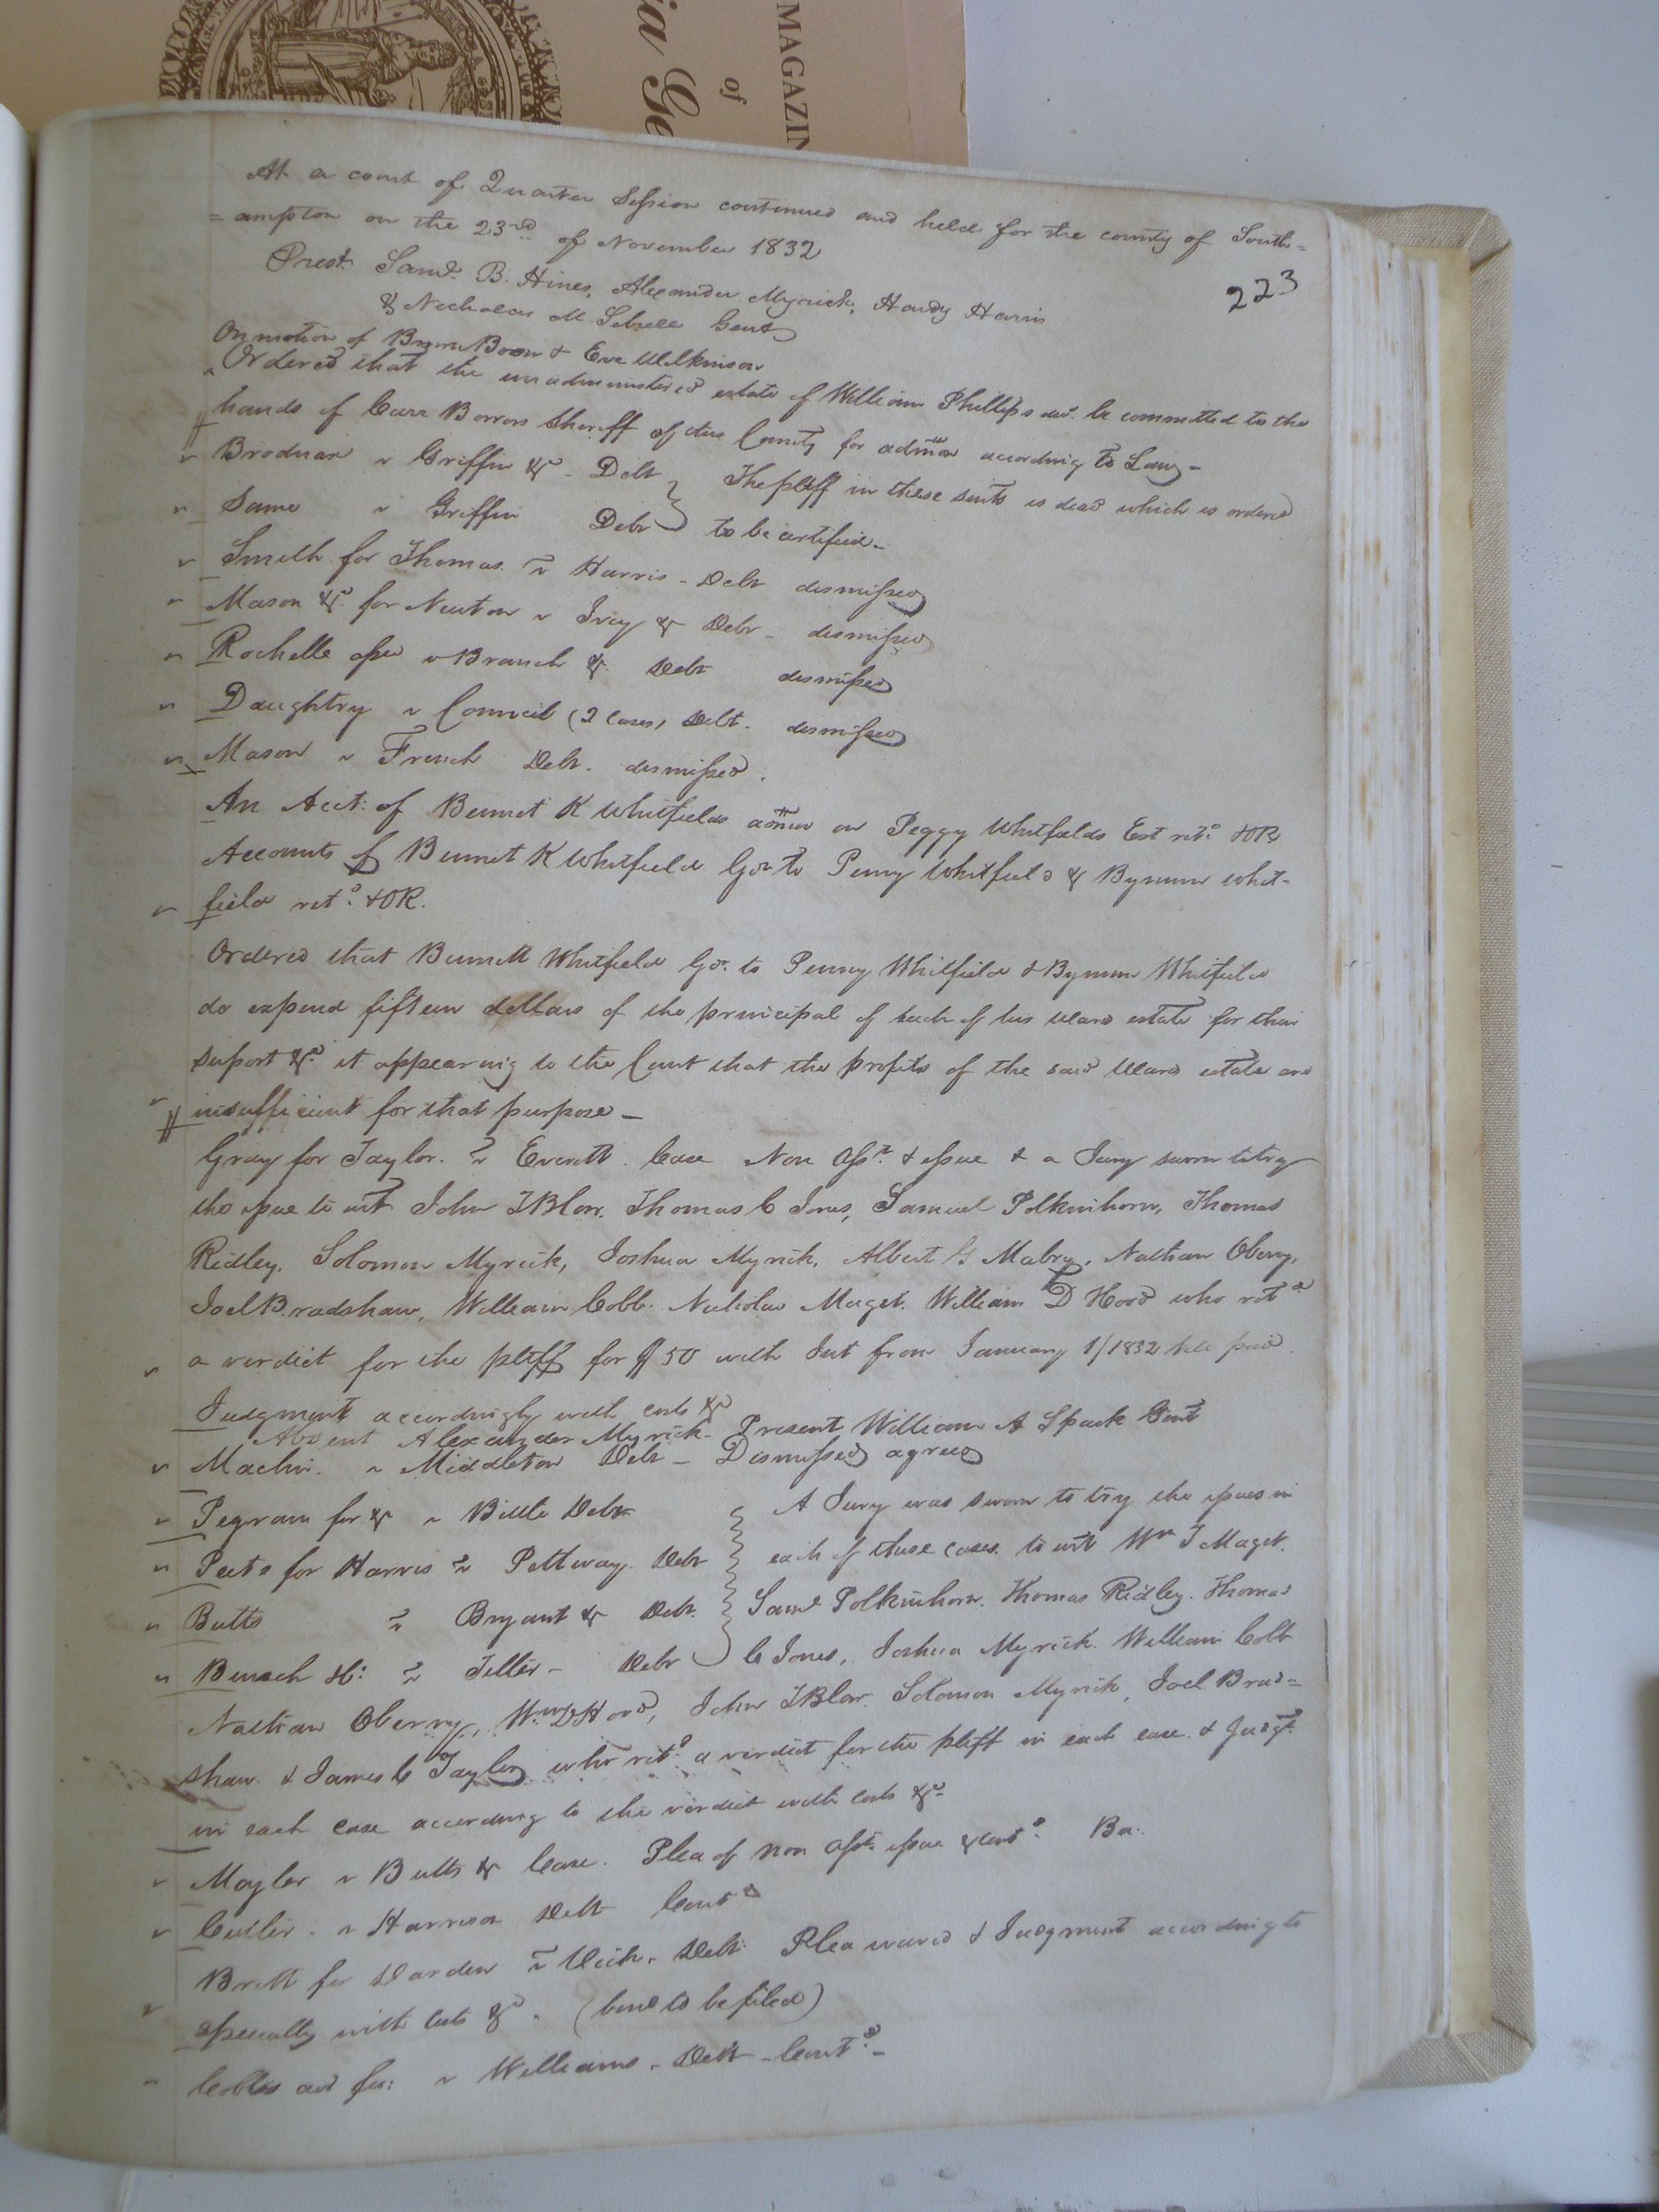 MAGAZIN
of
ia Ge
At a court of Quarter Session continued and held for the county of South=
=ampton on the 23rd of November 1832
223
Prest. Saml. B. Hines, Alexander Myrick, Hardy Harris
& Nicholas M. Sebrell Gent
On motion of Boon & Eve Wilkinson
Ordered that the unadministered estate of William Phillips decd. be committed to the
hands of Carr Bowers Sheriff of this County for admon according to Law -
Brodnax v Griffin &c - Debt } The pltff in these suits is dead which is ordered
Same v Griffin Debt } to be certified -
Smith for Thomas v Harris - Debt dismissed
Mason &c. for Newton v Ivey & Debt - dismissed
Rochelle assee v Branch &c. Debt dismissed
Daughtry v Council (2 cases) Debt - dismissed
Mason v French Debt - dismissed.
An Acct: of Bennet K Whitfields admon on Peggy Whitfields Est retd. &OR
Accounts of Bennet K Whitfield Gdn to Penny Whitfield & Bynum Whit-
field retd. &OR.
Ordered that Bennett Whitfield Gdn. to Penny Whitfield & Bynum Whitfield
do expend fifteen dollars of the principal of each of his wards estate for their
suport &c. it appearing to the Court that the profits of the said wards estate are
insufficient for that purpose -
Gray for Taylor. v Everett. Case Non Asst. & issue & a Jury sworn to try
the issue to wit John T Blow, Thomas C Jones, Samuel Polkinhorn, Thomas
Ridley, Solomon Myrick, Joshua Myrick, Albert G Mabry, Nathan Oberry,
Joel Bradshaw, William Cobb. Nicholas Maget. William D Hood who retd
a verdict for the pltff for $50 with Int from January 1/1832 till paid.
Judgment accordingly with costs &c
Absent Alexander Myrick - Present William A Spark Gent
Machin. v Middleton Debt - Dismissed agreed
Pegram for &c v Bittle Debt } A Jury was sworn to try the issues in
Peete for Harris v Pettway. Debt } each of these cases. to wit Wm J Maget.
Butts v Bryant & Debt. } Saml Polkinhorn. Thomas Ridley. Thomas
v Tiller - Debt } C Jones, Joshua Myrick. William Cobb
Nathan Oberry, Wm D Hood, John T Blow. Solomon Myrick, Joel Brad=
shaw. & James C Taylor who retd. a verdict for the pltff in each case & Judgt.
in each case according to the verdict with costs &c-
Moyler v Butts & Case. Plea of non Asst. issue & contd. Ba.
Cutler. v Harrison Debt Contd
Brett for Darden v Vick. Debt. Plea waived & Judgment according to
specialty with costs &c. (bond to be filed)
v Williams. Debt - Contd. -